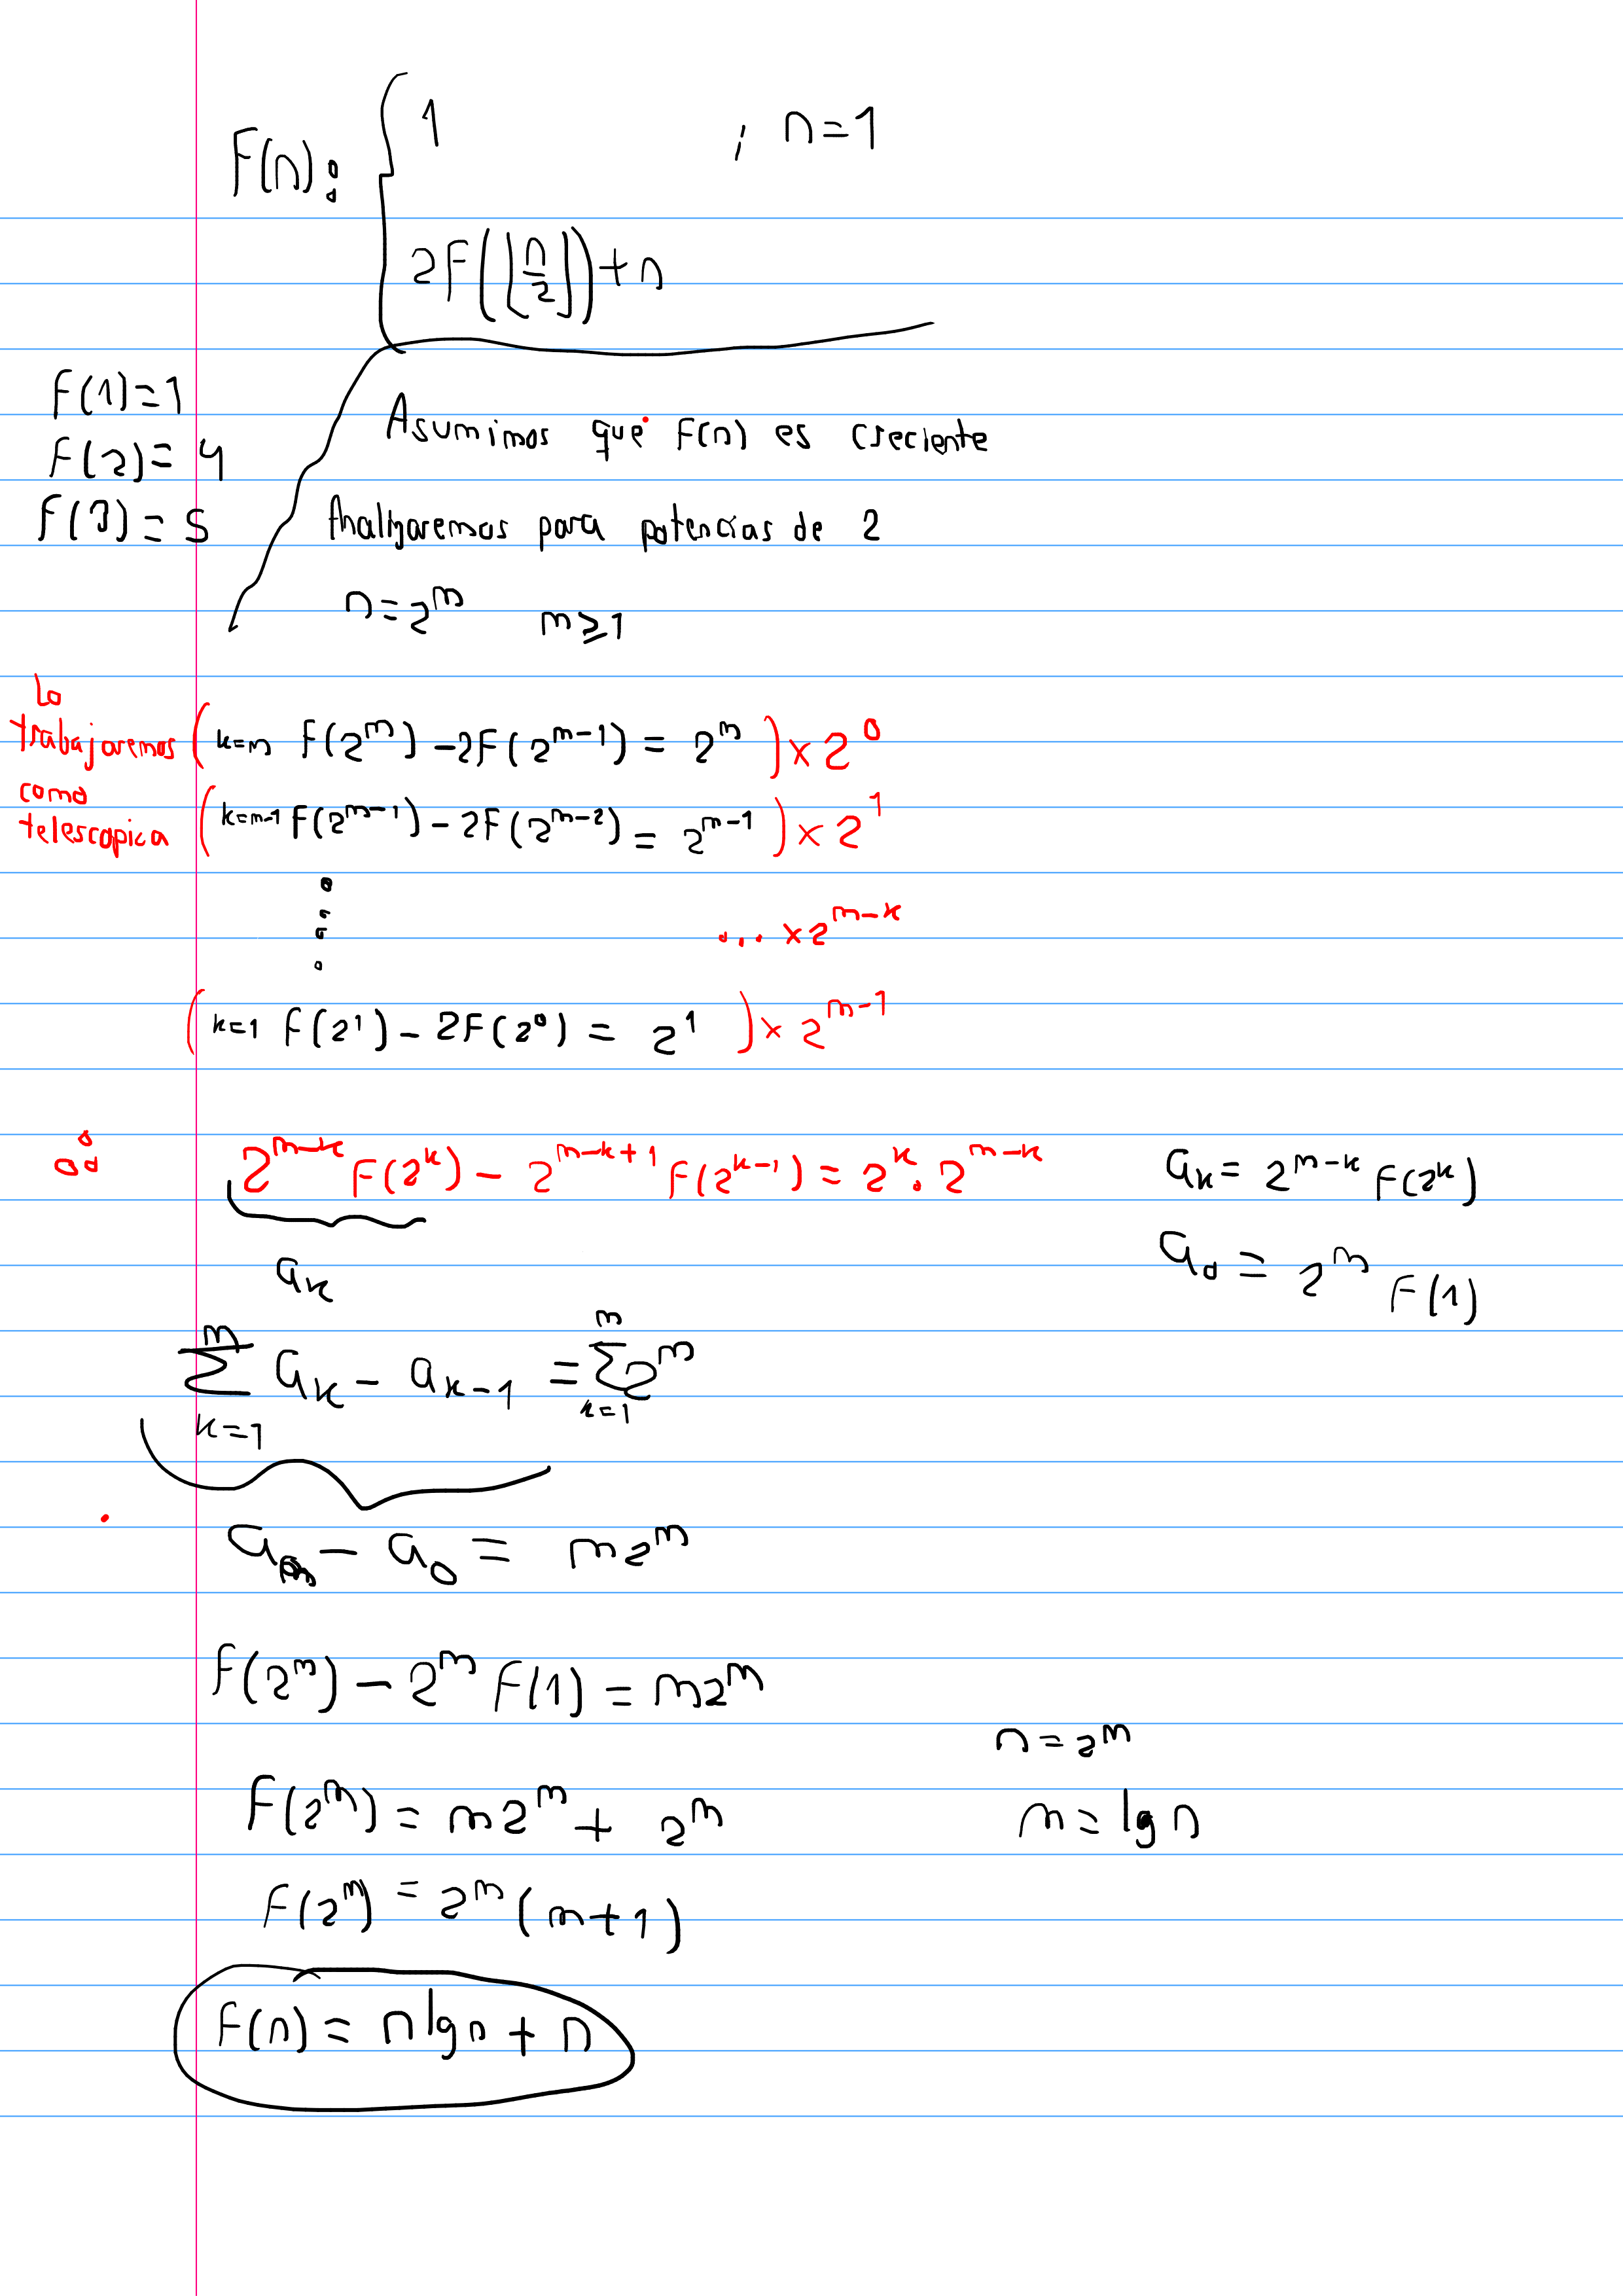 F(n): { 1 ; n=1
2F(⌊n/2⌋)+n
F(1)=1
F(2)=4
F(3)=5
Asumimos que F(n) es creciente
Analizaremos para potencias de 2
n=2^m m≥1
lo trabajaremos como telescopica
(k=m F(2^m) -2F(2^{m-1}) = 2^m )×2^0
(k=m-1 F(2^{m-1}) - 2F(2^{m-2}) = 2^{m-1} )×2^1
⋮ ... ×2^{m-k}
(k=1 F(2^1) - 2F(2^0) = 2^1 )×2^{m-1}
∴ 2^{m-k} F(2^k) - 2^{m-k+1} F(2^{k-1}) = 2^k . 2^{m-k}
a_k
a_k = 2^{m-k} F(2^k)
a_0 = 2^m F(1)
∑_{k=1}^{m} a_k - a_{k-1} = ∑_{k=1}^{m} 2^m
a_m - a_0 = m2^m
F(2^m) - 2^m F(1) = m2^m
F(2^m) = m2^m + 2^m
n=2^m
m = lg n
F(2^m) = 2^m (m+1)
F(n) = n lg n + n